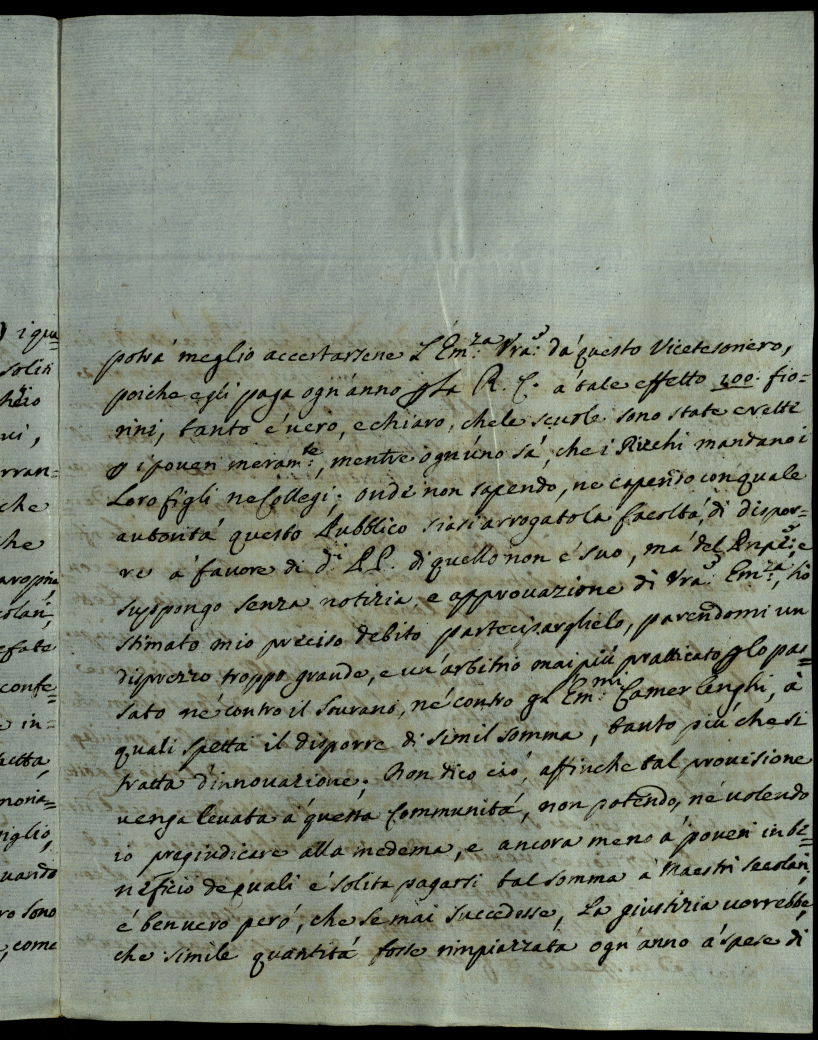 potrà meglio accertarsene L'Em:za Vra: da questo Vicetesoriero,
poiche egli paga ogn'anno p la R. C. a tale effetto 200: fio=
rini, tanto è vero, e chiaro, che le scuole sono state erette
p i poveri meram:te, mentre ogn'uno sà, che i Ricchi mandano i
Loro figli ne Collegi; onde non sapendo, ne capendo con quale
autorità questo Pubblico siasi arrogato la facoltà, di dispor=
re à favore di d:i PP. di quello non è suo, mà del Pnpe:, e
suppongo senza notizia, e approuazione di Vra: Em:za, hò
stimato mio preciso debito parteciparglielo, parendomi un
disprezzo troppo grande, e un'arbitrio mai più pratticato p lo pas=
sato nè contro il Sourano, nè contro gl'Em:mi Camerlenghi, à
quali spetta il disporre di simil somma, tanto più che si
tratta d'innouazione; Non dico ciò, affinche tal prouisione
uenga leuata à questa Communità, non potendo, nè uolendo
io pregiudicare alla medema, e ancora meno à poueri in be=
neficio de quali è solita pagarsi tal somma à Maestri secolari,
è ben uero però, che se mai succedesse, La giustizia uorrebbe,
che simile quantità fosse rimpiazzata ogn'anno à spese di
i qua
soliti
ui,
rran=
che
he
colari,
efate
confe=
e in=
noria=
nglio,
uando
ro sono
, come